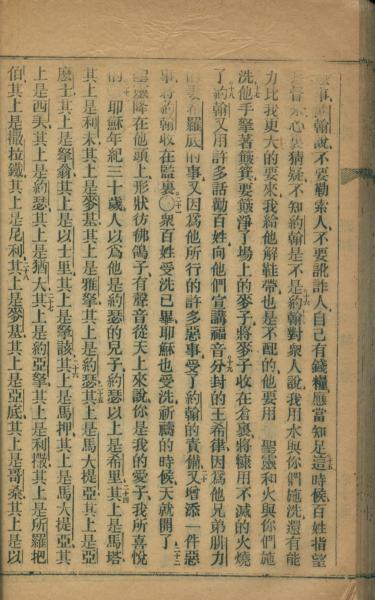 事、約翰說、不要勒索人、不要訛詐人、自己有錢糧、應當知足、這時候、百姓指望
基督、心裏猜疑、不知約翰是不是、約翰對衆人說、我用水與你們施洗、還有能
力比我更大的要來、我給他解鞋帶也是不配的、他要用 聖靈和火與你們施
洗、他手拏著簸箕、要簸淨了場上的麥子、將麥子收在倉裏、將糠用不滅的火燒
了、約翰又用許多話勸百姓、向他們宣講福音、分封的王希律、因爲他兄弟腓力
的妻希羅底的事、又因爲他所行的許多惡事、受了約翰的責備、又增添一件惡
事、將約翰收在監裏、〇衆百姓受洗已畢、耶穌也受洗、祈禱的時候、天就開了、
聖靈降在他頭上、形狀彷彿鴿子、有聲音從天上來說、你是我的愛子、我所喜悅
的、耶穌年紀三十歲、人以爲他是約瑟的兒子、約瑟以上是希里、其上是馬塔、
其上是利未、其上是麥基、其上是雅拏、其上是約瑟、其上是馬大提亞、其上是亞
麼士、其上是拏翁、其上是以士里、其上是拏該、其上是馬押、其上是馬大提亞、其
上是西美、其上是約瑟、其上是猶大、其上是約亞拏、其上是利撒、其上是所羅把
伯、其上是撒拉鐵、其上是尼利、其上是麥基、其上是亞底、其上是哥桑、其上是以